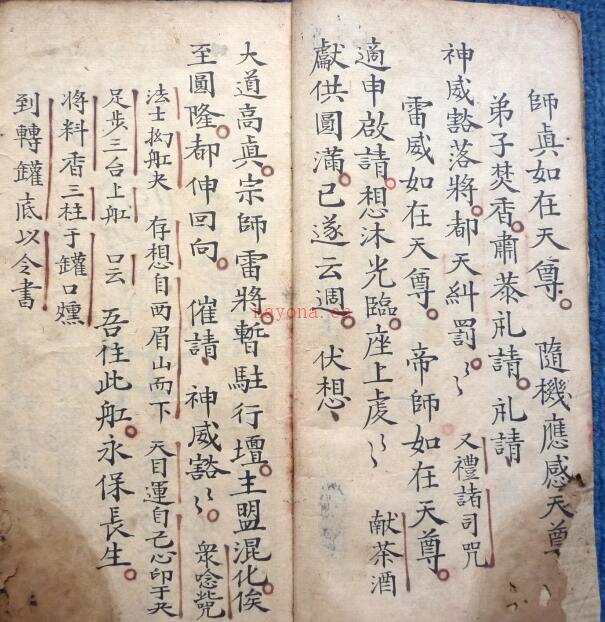 師真如在天尊。 隨機應感天尊
弟子焚香。肅恭礼請。礼請
神威豁落將。都天糾罰。〻 又禮諸司咒
雷威如在天尊。 帝師如在天尊。
適申啟請。想沐光臨。座上虔〻 献茶酒
獻供圓滿。已遂云週。伏想、
大道高真。宗師雷將。暫駐行壇。主盟混化。俟
至圓隆。都伸回向。 催請、神威豁〻。 衆唸咒
法士拗舡夬 存想自西眉山而下 天目運自己心印于夬
足步三台上舡 口云 吾往此舡。永保長生。
將料香三柱于罐口燻
到轉罐底以令書
nayona.cn